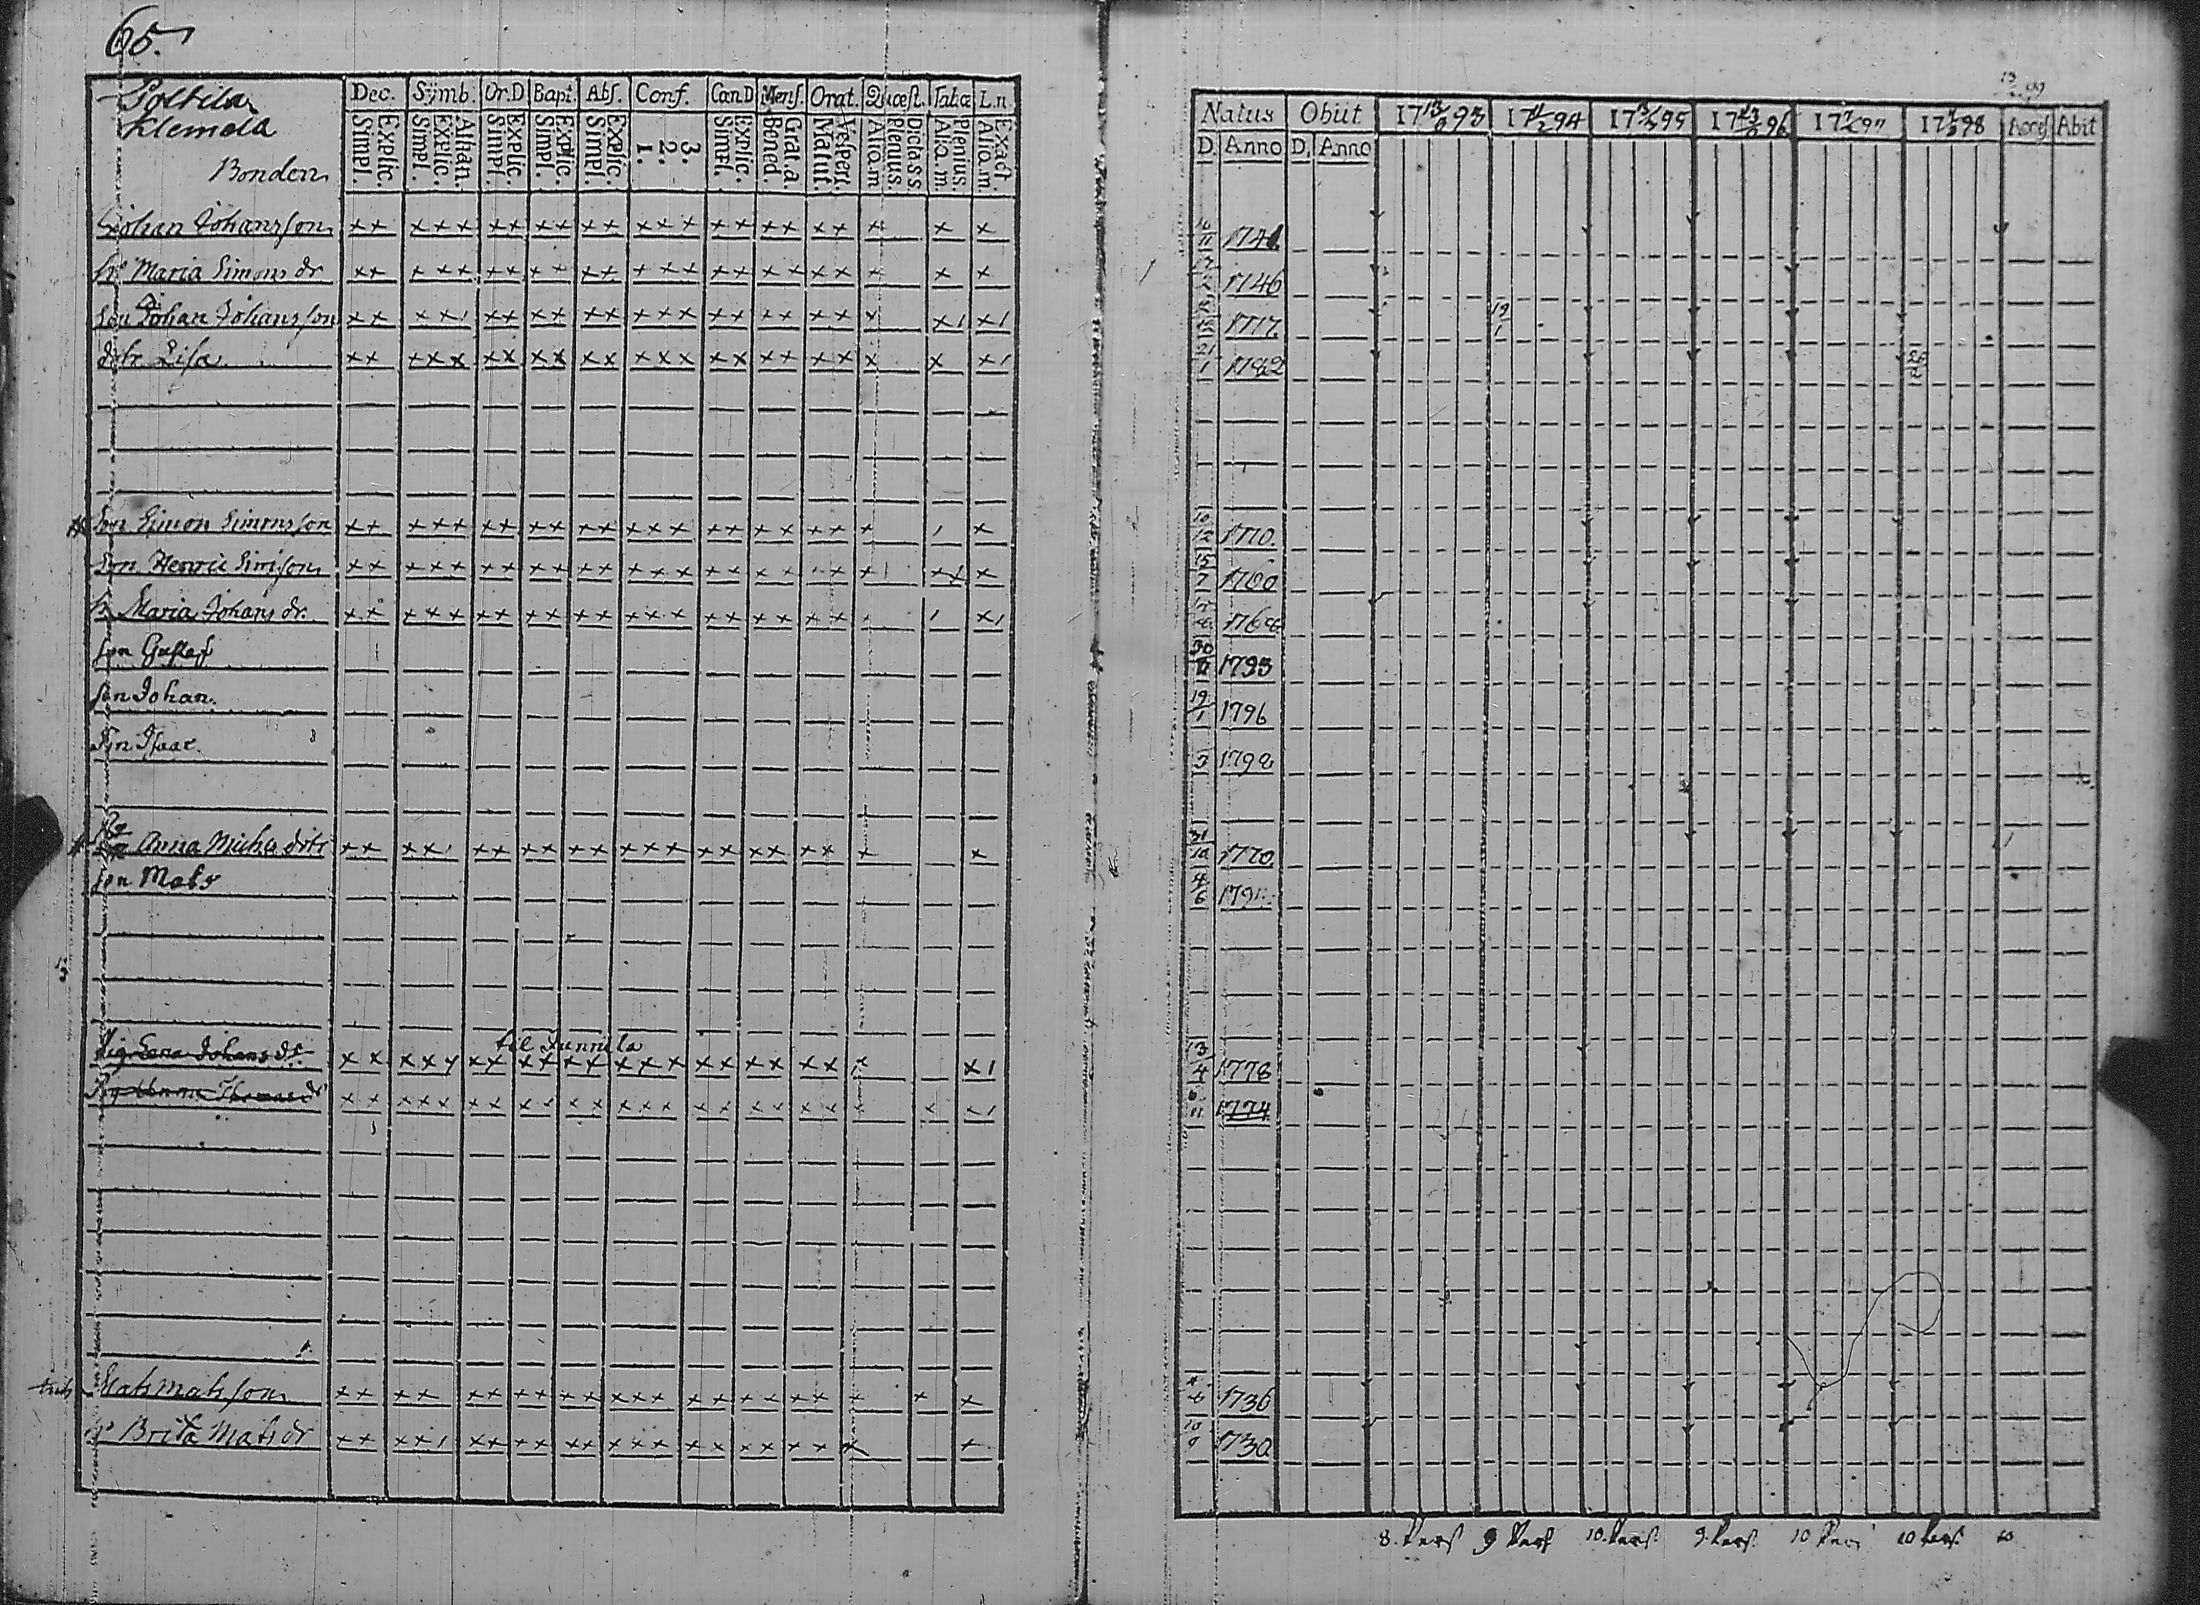 65.
Klemola
Bonden
Dec. Symb. Or.D Bapt. Abs. Conf. Can.D Mens. Orat. Quæst. Tabæ L.n.
Simpl. Explic. Simpl. Explic. Athan. Simpl. Explic. Simpl. Explic. Simpl. Explic. 1. 2. 3. Simpl. Explic. Bened. Grat.a. Matut. Vesperi. Aliq.m Plenius. Dicta SS Aliq.m Plenius. Aliq.m. Exact.
Johan Johansson
Maria Simons dr
Son Johan Johansson
dotr Lisa
Son Simon Simonsson
Son Henric Simsson
h Maria Johans dr.
son Gustaf
son Johan.
Son Isaac.
Anna Micha dotr
son Mats
til Junnila
Pig Lena Johans dr
Pig Anna Thomas dr
Mats Matsson
Brita Mats dr
13 99
Natus Obiit 17 93 17 94 17 95 17 96 17 97 17 98 Acces Abit
D. Anno D. Anno
1741
1746
19/1
1777
21/1 1782
1770.
15/7 1760
1768
30 1793
19/1 1796
1798
31/10 1770
6
13/4 1778
11 1774
1736
1730
8. Pers 9 Pers 10. Pers. 9. Pers. 10 Pers 10 Pers. 10